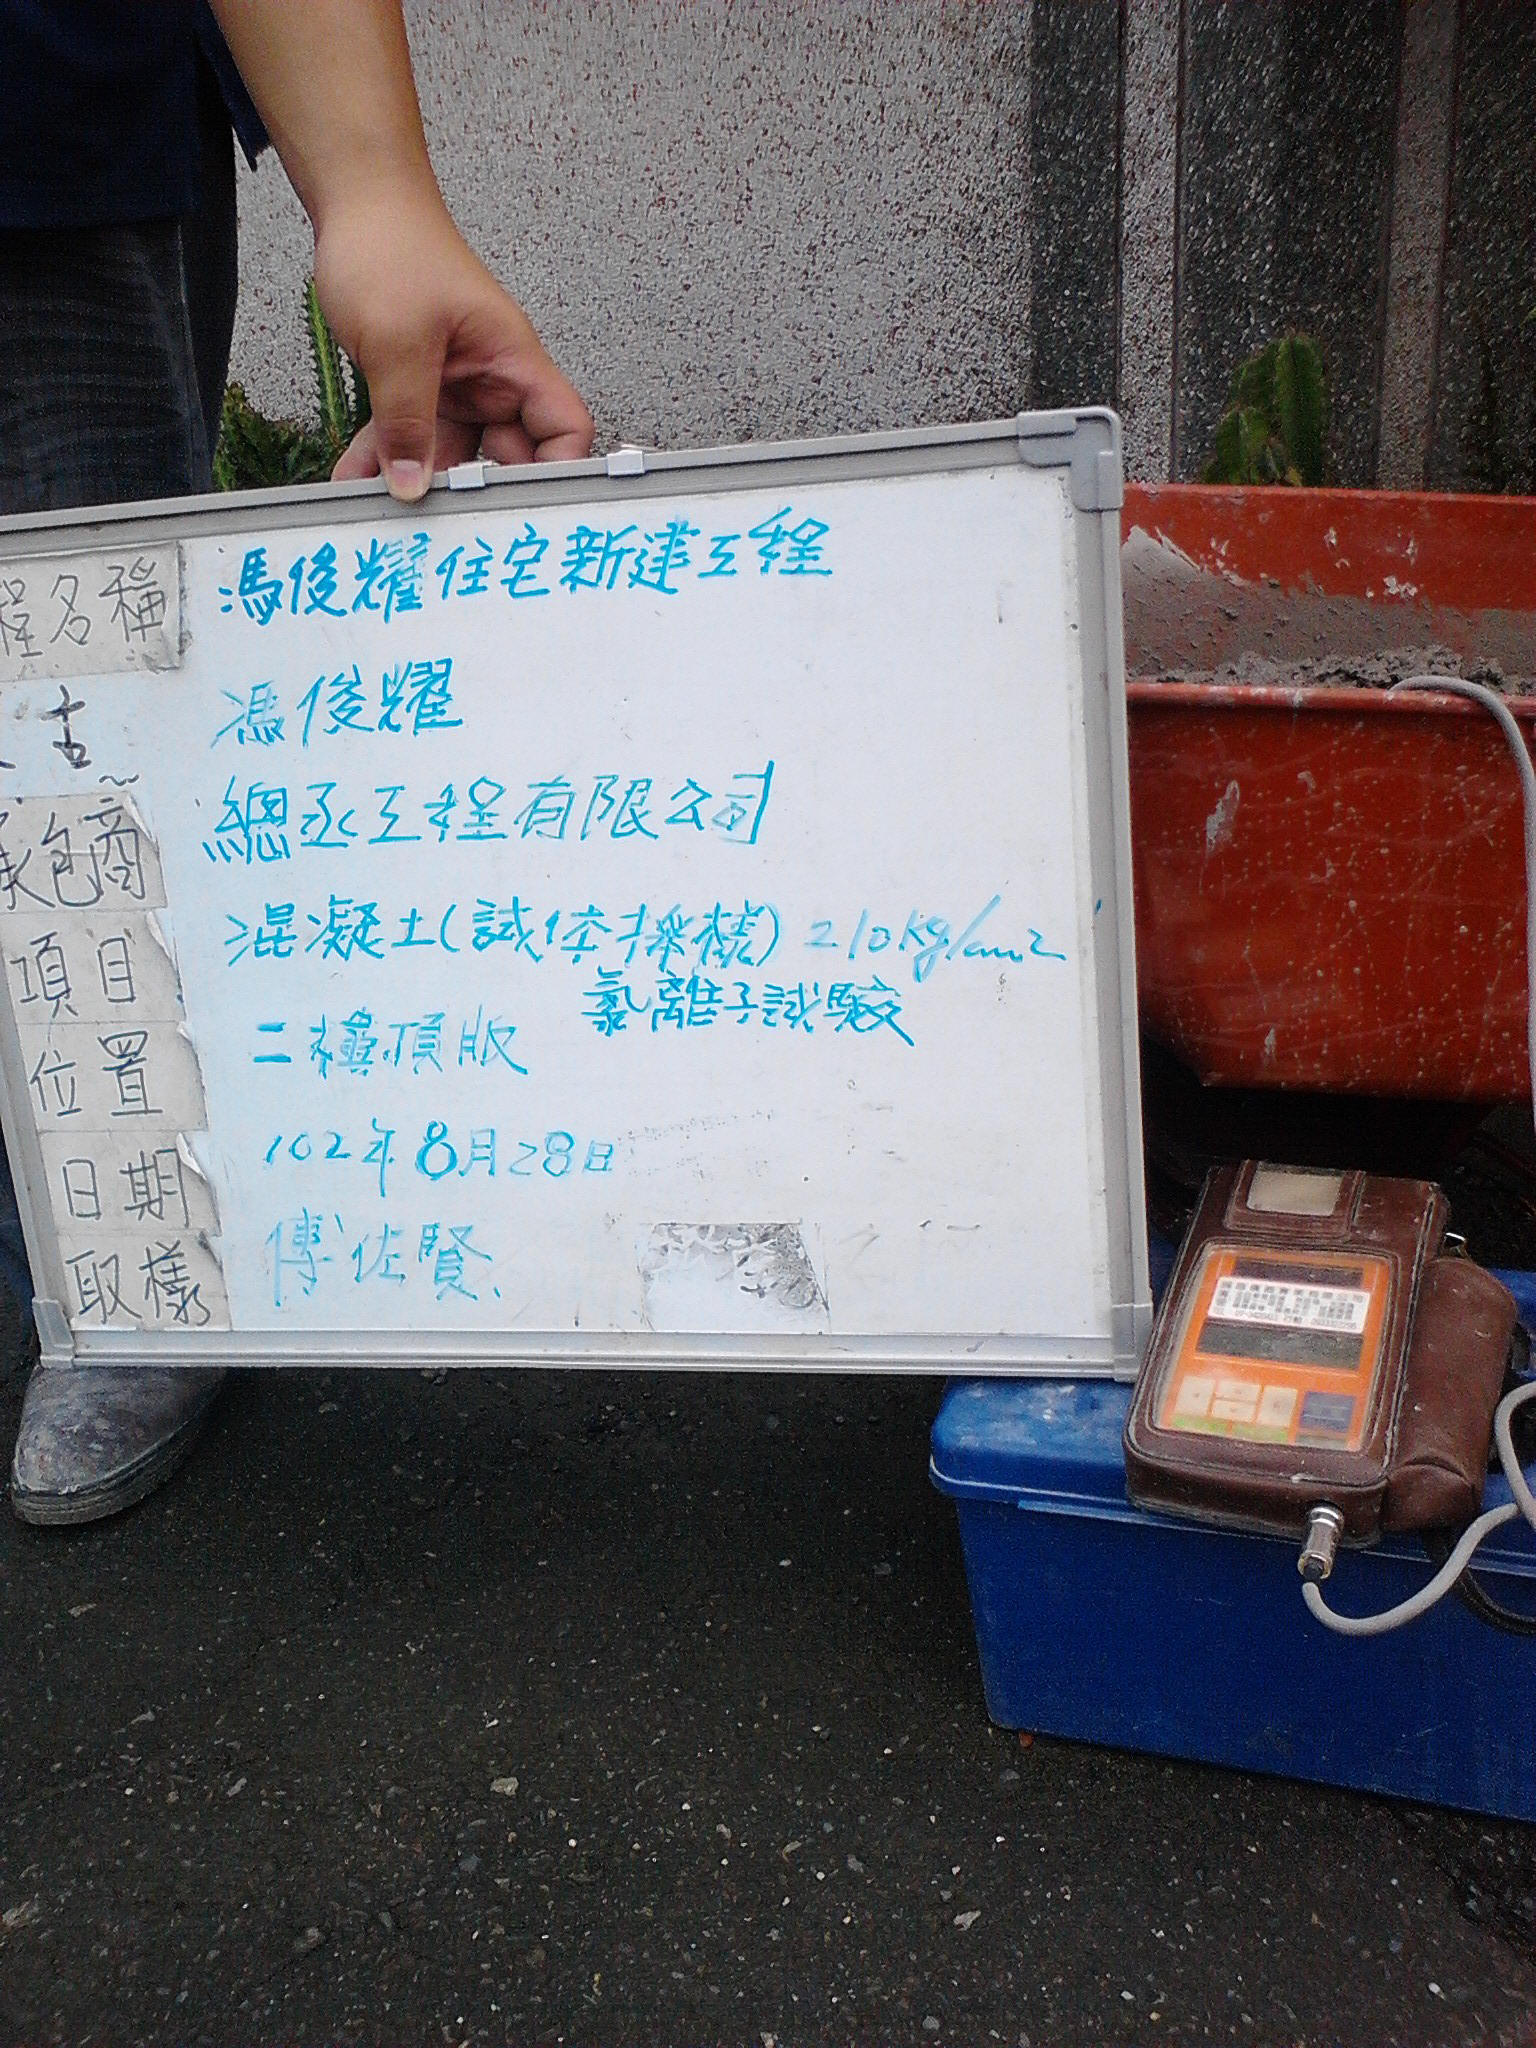 程名稱 馮俊耀住宅新建工程
主 馮俊耀
承包商 總丞工程有限公司
項目 混凝土(試体採樣) 210kg/cm2
氯離子試驗
位置 二樓頂版
日期 102年8月28日
取樣 傅佐賢